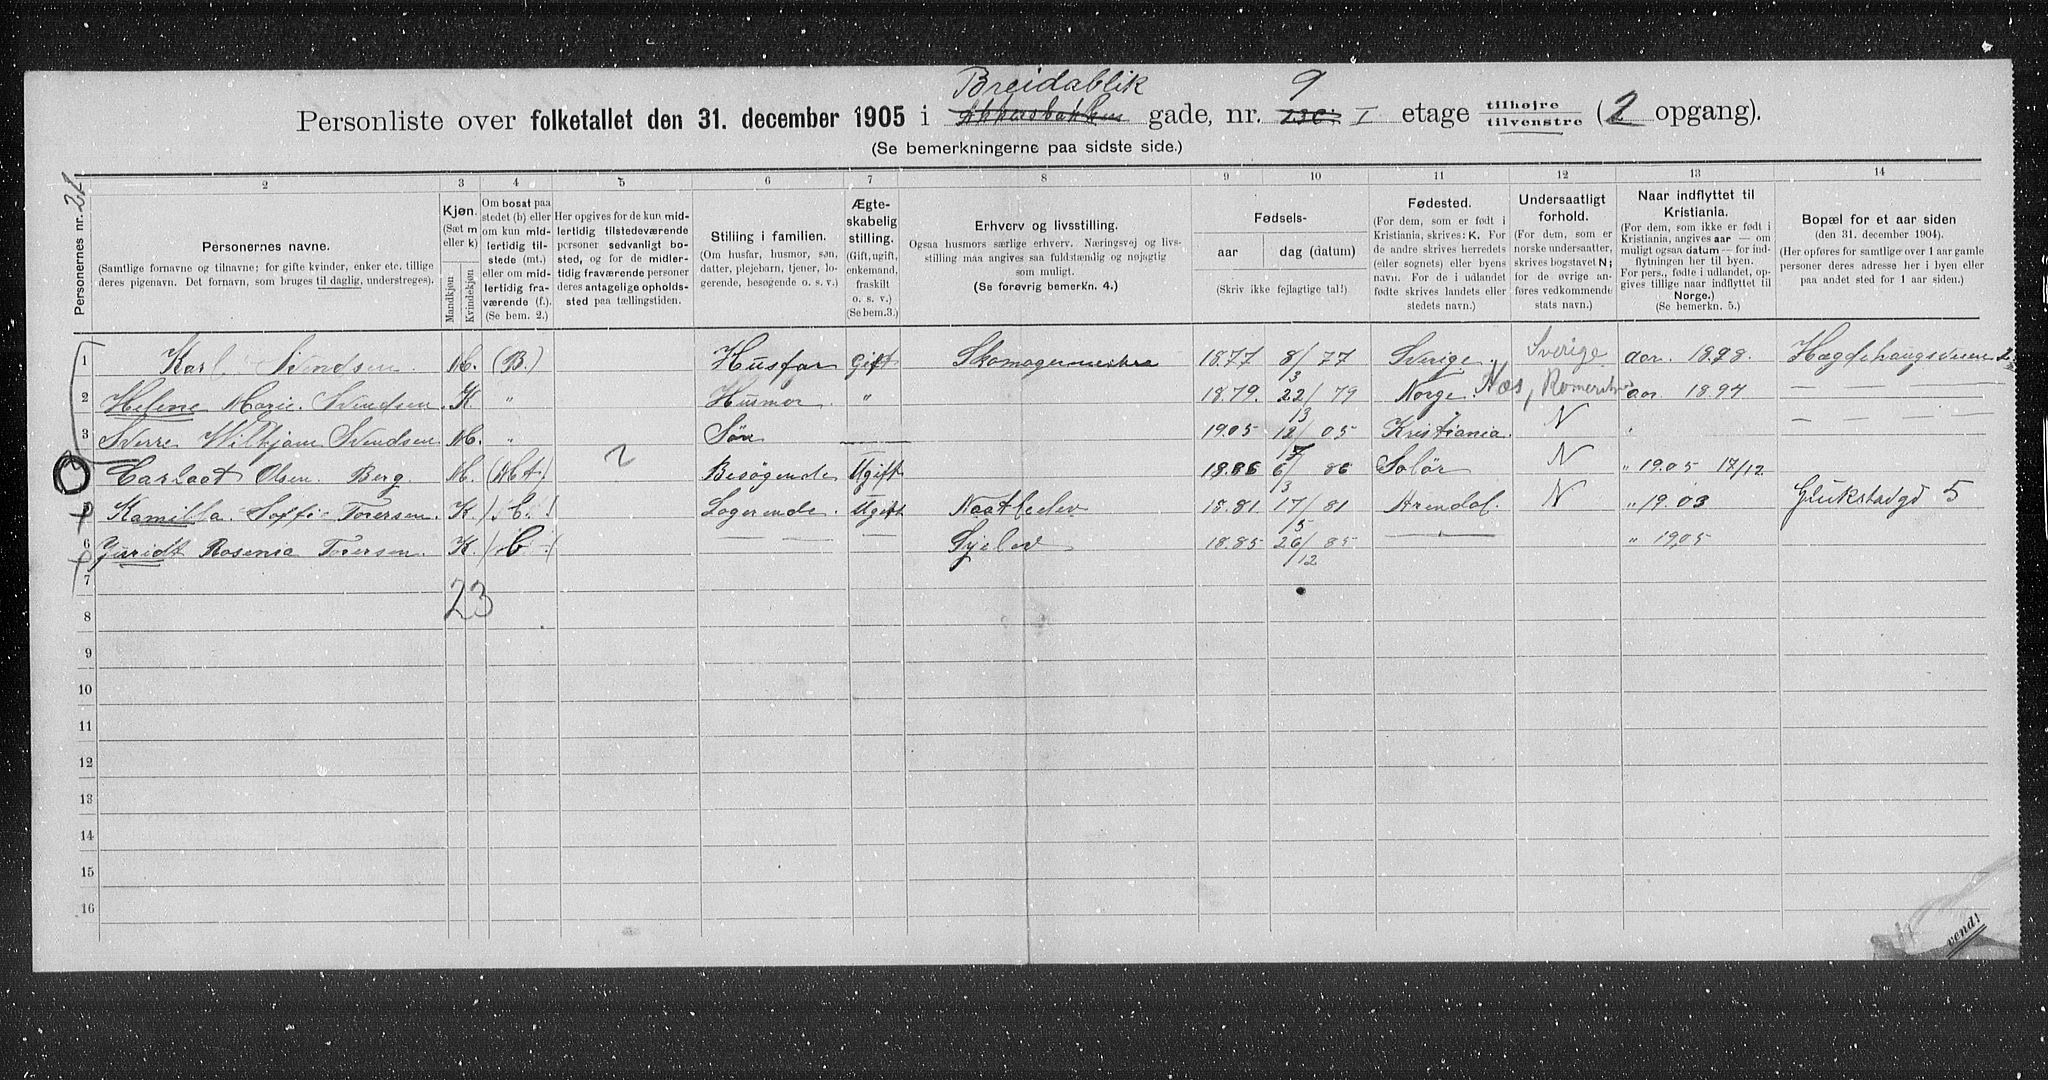 Breidablik 9
Personliste over folketallet den 31. december 1905 i gade, nr. I etage tilhøjre tilvenstre (2 opgang).
(Se bemerkningerne paa sidste side.)
2 3 4 5 6 7 8 9 10 11 12 13 14
Personernes nr.
Personernes navne.
(Samtlige fornavne og tilnavne; for gifte kvinder, enker etc. tillige
deres pigenavn. Det fornavn, som bruges til daglig, understreges).
Kjøn.
(Sæt m
eller k)
Mandkjøn
Kvindekjøn
Om bosat paa
stedet (b) eller
om kun mid-
lertidig til-
stede (mt.)
eller om mid-
lertidig fra-
værende (f.).
(Se bem. 2.)
Her opgives for de kun mid-
lertidig tilstedeværende
personer sedvanligt bo-
sted, og for de midler-
tidig fraværende personer
deres antagelige opholds-
sted paa tællingstiden.
Stilling i familien.
(Om husfar, husmor, søn,
datter, plejebarn, tjener, lo-
gerende, besøgende o. s. v.)
Ægte-
skabelig
stilling.
(Gift, ugift,
enkemand,
fraskilt
o. s. v.)
(Se bem. 3.)
Erhverv og livsstilling.
Ogsaa husmors særlige erhverv. Næringsvej og livs-
stilling maa angives saa fuldstændig og nøjagtig
som muligt.
(Se forøvrig bemerkn. 4.)
Fødsels-
aar dag (datum)
(Skriv ikke fejlagtige tal!)
Fødested.
(For dem, som er født i
Kristiania, skrives: K. For
de andre skrives herredets
(eller sognets) eller byens
navn. For de i udlandet
fødte skrives landets eller
stedets navn.)
Undersaatligt
forhold.
(For dem, som er
norske undersaatter,
skrives bogstavet N;
for de øvrige an-
føres vedkommende
stats navn.)
Naar indflyttet til
Kristiania.
(For dem, som ikke er født i
Kristiania, angives aar — om
muligt ogsaa datum — for ind-
flytningen her til byen.
For pers., fødte i udlandet, op-
gives tillige naar indflyttet til
Norge.)
(Se bemerkn. 5.)
Bopæl for et aar siden
(den 31. december 1904).
(Her opføres for samtlige over 1 aar gamle
personer deres adresse her i byen eller
paa andet sted for 1 aar siden.)
1 Karl Svendsen M. (B.) Husfar Gift Skomagermester 1877 8/3 77 Sverige Sverige aar 1898
2 Helene Marie Svendsen K " Husmor " 1879 22/13 79 Norge Næs, aar 1894 — — —
3 Sverre Svendsen M. " Søn — 1905 12/ 05 Kristiania N — —
Olsen Berg M. (Mt) Besøgende Ugift 1886 6/3 86 Solør N " 1905 17/12
Kamilla Soffi Toversen K. Logerende Ugift 1881 17/5 81 Arendal N " 1903 5
6 Rosenia Toversen K — — — — 1885 26/12 85 — " 1905
7
23
8
9
10
11
12
13
14
15
16
vend!